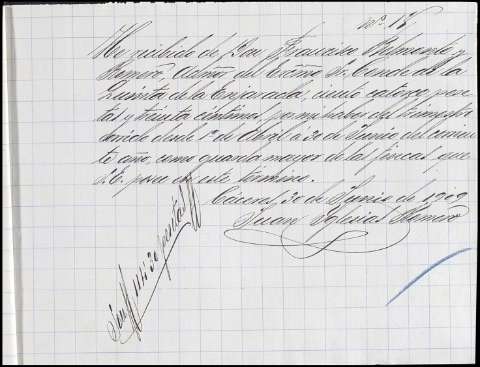 Nº 14
He recibido de Don Francisco Belmonte y
Romero, Admor del Excmo Sr. Conde de la
Quinta de la Enjarada, ciento catorce pese-
tas y treinta céntimos, por mi haber del trimestre
desde 1º de Abril a 30 de Junio del corrien-
te año, como guarda mayor de las fincas que
S.E. posee en este término.
Cáceres, 30 de Junio de 1909
Juan Iglesias Romero
Son 114'30 pesetas